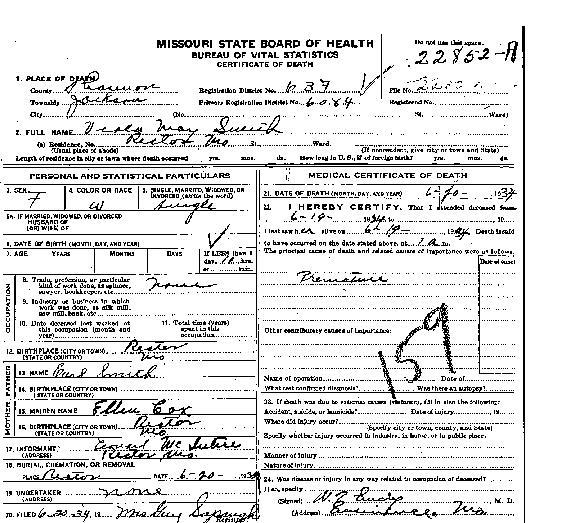 MISSOURI STATE BOARD OF HEALTH
BUREAU OF VITAL STATISTICS
CERTIFICATE OF DEATH
Do not use this space.
22852-A
1. PLACE OF DEATH
County Shannon Registration District No. 637 File No.
Township Jackson Primary Registration District No. 6084 Registered No.
City (No. St. Ward)
2. FULL NAME May Smith
(a) Residence, No. Rector Mo St. Ward.
(Usual place of abode) (If nonresident, give city or town and State)
Length of residence in city or town where death occurred yrs. mos. ds. How long in U. S., if of foreign birth? yrs. mos. ds.
PERSONAL AND STATISTICAL PARTICULARS
3. SEX 4. COLOR OR RACE 5. SINGLE, MARRIED, WIDOWED, OR DIVORCED (write the word)
F W Single
5A. IF MARRIED, WIDOWED, OR DIVORCED
HUSBAND OF
(OR) WIFE OF
6. DATE OF BIRTH (MONTH, DAY, AND YEAR)
7. AGE YEARS MONTHS DAYS If LESS than 1 day, hrs. or min.
OCCUPATION
8. Trade, profession, or particular kind of work done, as spinner, sawyer, bookkeeper, etc. none
9. Industry or business in which work was done, as silk mill, saw mill, bank, etc.
10. Date deceased last worked at this occupation (month and year)
11. Total time (years) spent in this occupation
12. BIRTHPLACE (CITY OR TOWN) Rector
(STATE OR COUNTRY) Mo
FATHER
13. NAME Smith
14. BIRTHPLACE (CITY OR TOWN)
(STATE OR COUNTRY)
MOTHER
15. MAIDEN NAME Ellen Cox
16. BIRTHPLACE (CITY OR TOWN) Rector
(STATE OR COUNTRY) Mo
17. INFORMANT
(ADDRESS) Rector Mo.
18. BURIAL, CREMATION, OR REMOVAL
PLACE Rector DATE 6-20- 1934
19. UNDERTAKER none
(ADDRESS)
20. FILED 6-20-34, 19 Mrs Guy
Registrar
MEDICAL CERTIFICATE OF DEATH
21. DATE OF DEATH (MONTH, DAY, AND YEAR) 6-20- 1934
22. I HEREBY CERTIFY, That I attended deceased from
6-19- 1934, to 19
I last saw alive on 6-19- 1934. Death is said
to have occurred on the date stated above, at m.
The principal cause of death and related causes of importance were as follows:
Date of onset
Premature
159
Other contributory causes of importance:
Name of operation Date of
What test confirmed diagnosis? Was there an autopsy?
23. If death was due to external causes (violence), fill in also the following:
Accident, suicide, or homicide? Date of injury , 19
Where did injury occur?
(Specify city or town, county, and State)
Specify whether injury occurred in industry, in home, or in public place.
Manner of injury
Nature of injury
24. Was disease or injury in any way related to occupation of deceased?
If so, specify
(Signed) M. D.
(Address) Mo